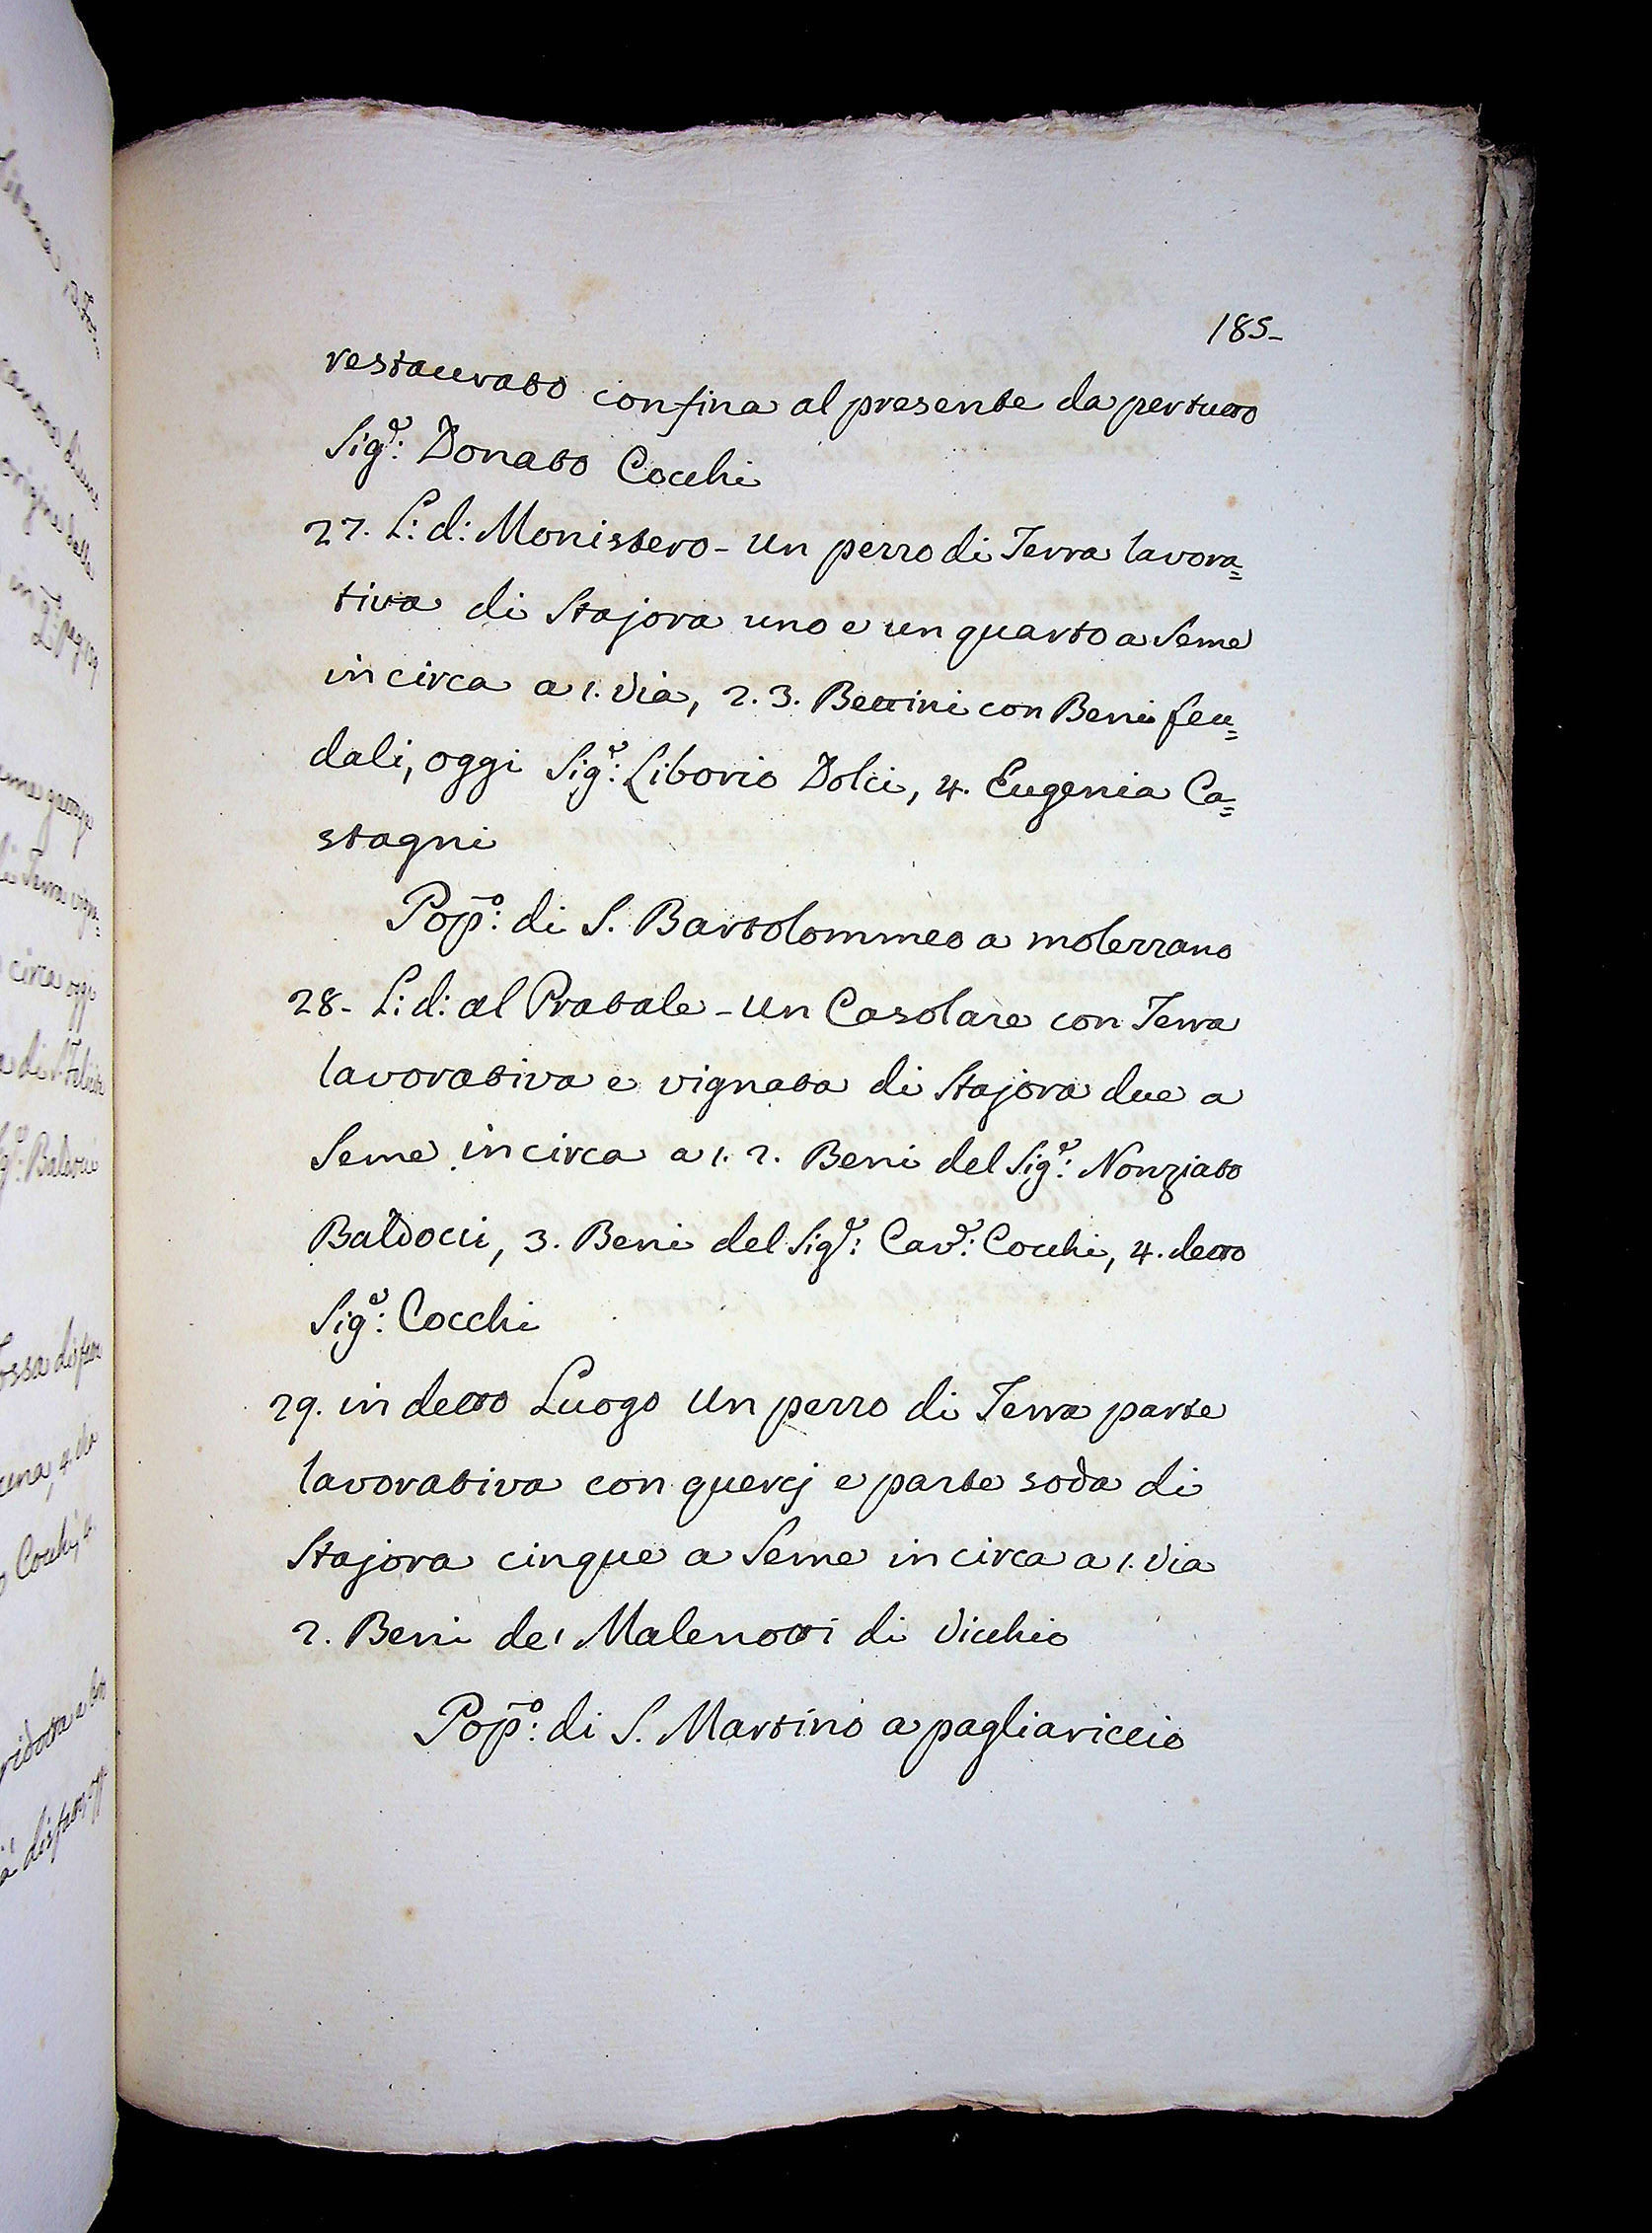 185-
restaurato confina al presente da pertutto
Sig.e: Donato Cocchi
27. L: d: Monistero - Un pezzo di Terra lavora=
tiva di Stajora uno e un quarto a Seme
in circa a 1. Via, 2. 3. Bettini con Beni feu=
dali, oggi Sig.e: Liborio Dolci, 4. Eugenia Ca=
stagni
Pop̃o: di S. Bartolommeo a molezzano
28- L: d: al Pratale - Un Casolare con Terra
lavorativa e vignata di Stajora due a
Seme in circa a 1. 2. Beni del Sig.e: Nonziato
Baldocci, 3. Beni del Sig.e: Cav.e: Cocchi, 4. detto
Sig.e: Cocchi
29. in detto Luogo Un pezzo di Terra parte
lavorativa con quercj e parte soda di
Stajora cinque a Seme in circa a 1. Via
2. Beni de' Malenotti di Vicchio
Pop̃o: di S. Martino a pagliariccio